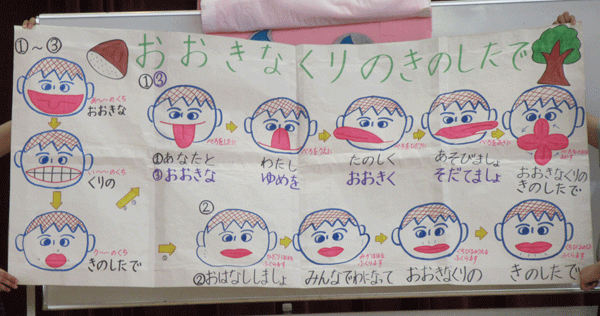 おおきなくりのきのしたで
①～③
あ～～のくち
おおきな
い～～のくち
くりの
う～～のくち
きのしたで
①③
①あなたと
③おおきな
わたし
ゆめを
たのしく
おおきく
あそびましょ
そだてましょ
おおきなくりの
きのしたで
②
②おはなししましょ
みんなでわになって
おおきなくりの
きのしたで